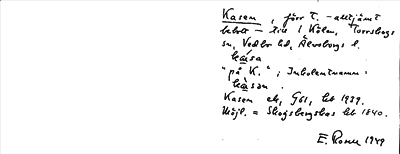 Kasen, förr t. – alltjämt
bebott – till 1 Kölen, Torrskogs
sn, Vedbo hd, Älvsborgs l.
kàsa
"på K."; Inbolentnamn:
kàsan.
Kasen ek, G61, bl 1939.
Möjl. = Skogsbergsbos bl 1840.
E. Rosen 1949